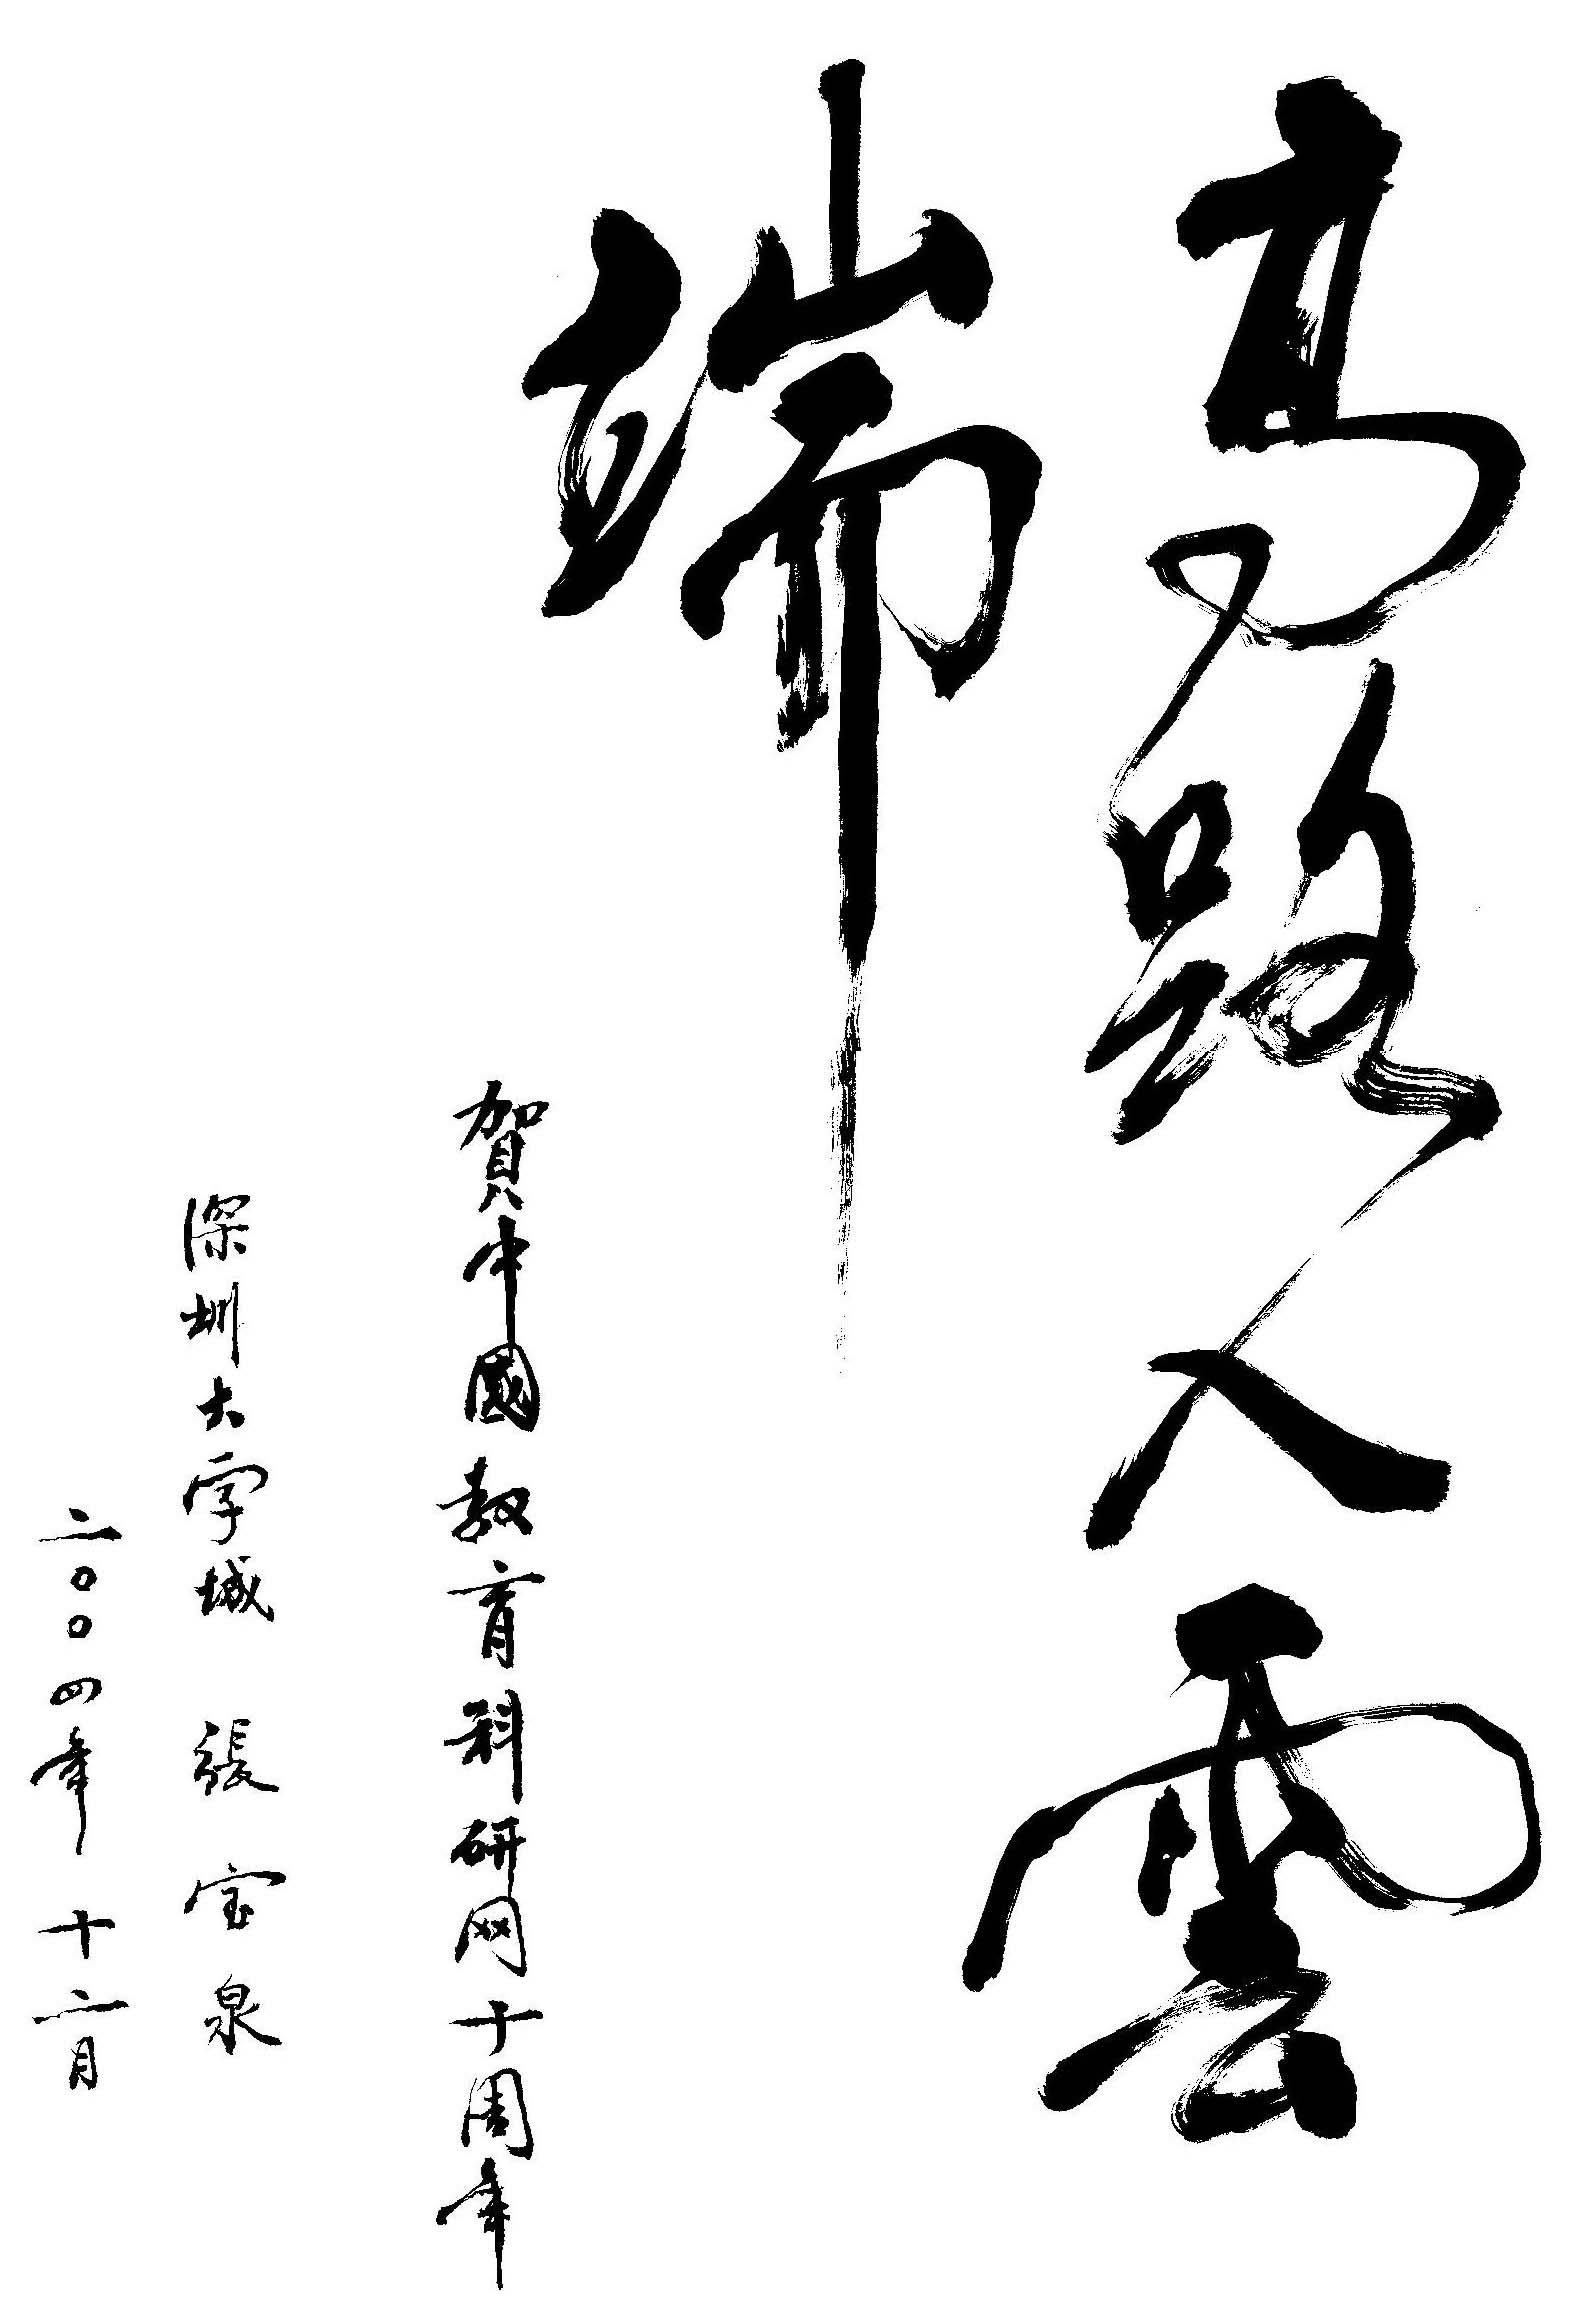 高路入雲
端
賀中國教育科研网十周年
深圳大学城 張宝泉
二〇〇四年十二月